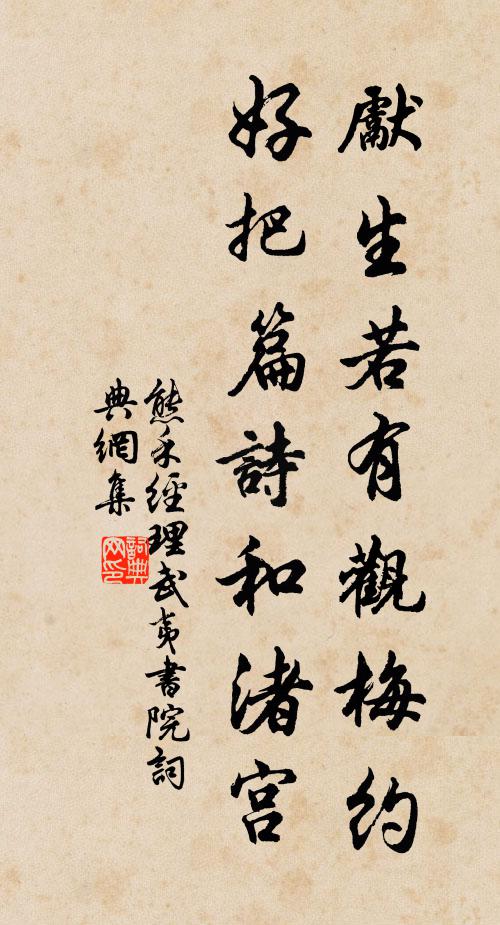 獻生若有觀梅約
好把篇詩和渚宮
熊禾經理武夷書院詞
典網集
詞典
网印